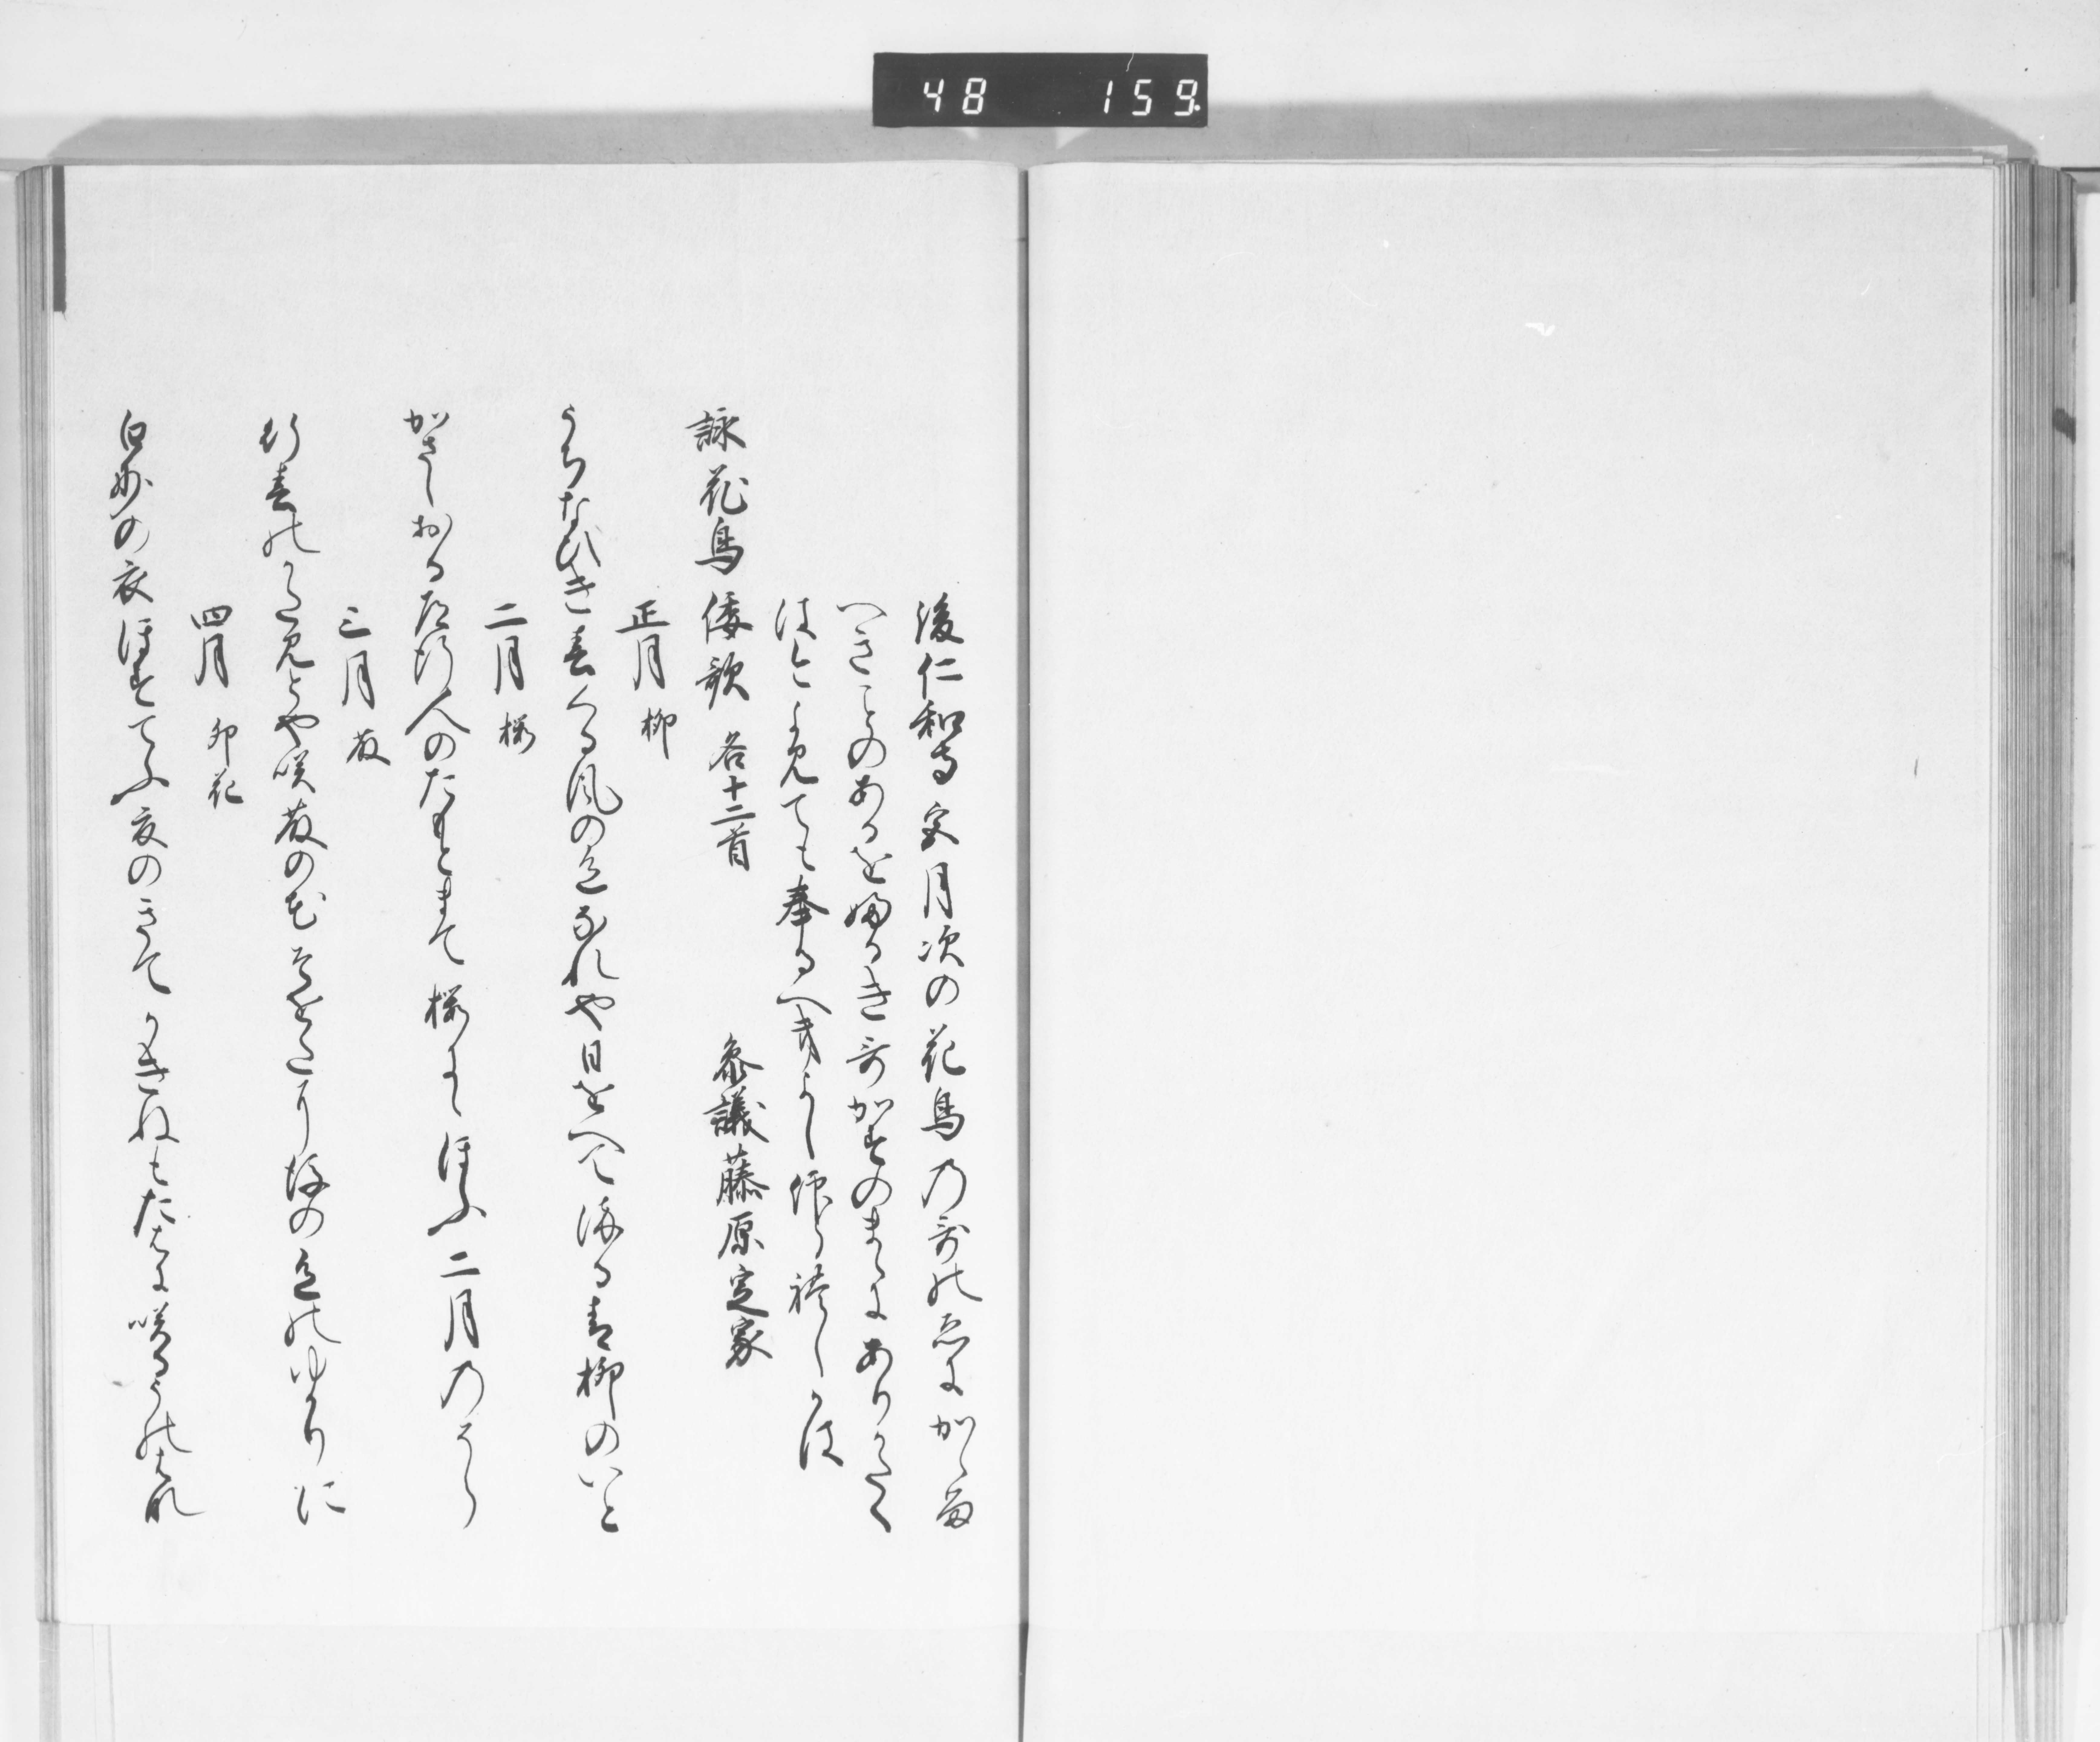 48 159
後仁和寺宮月次の花鳥乃哥の絵にかゝる
へきことのあるをふるき哥かすのまゝにありかたく
はとよみても奉るへきよし仰られしかは
詠花鳥倭歌 各十二首 参議藤原定家
正月 柳
うちなひき春くる風の色なれや日をへて染る青柳のいと
二月 桜
かさしおる道行人のたもとまて桜にゝほふ二月のそら
三月 藤
行春のかたみとや咲藤の花そをたに後の色のゆかりに
四月 卯花
白妙の衣ほすてふ夏のきてかきねもたはに咲るうのはな